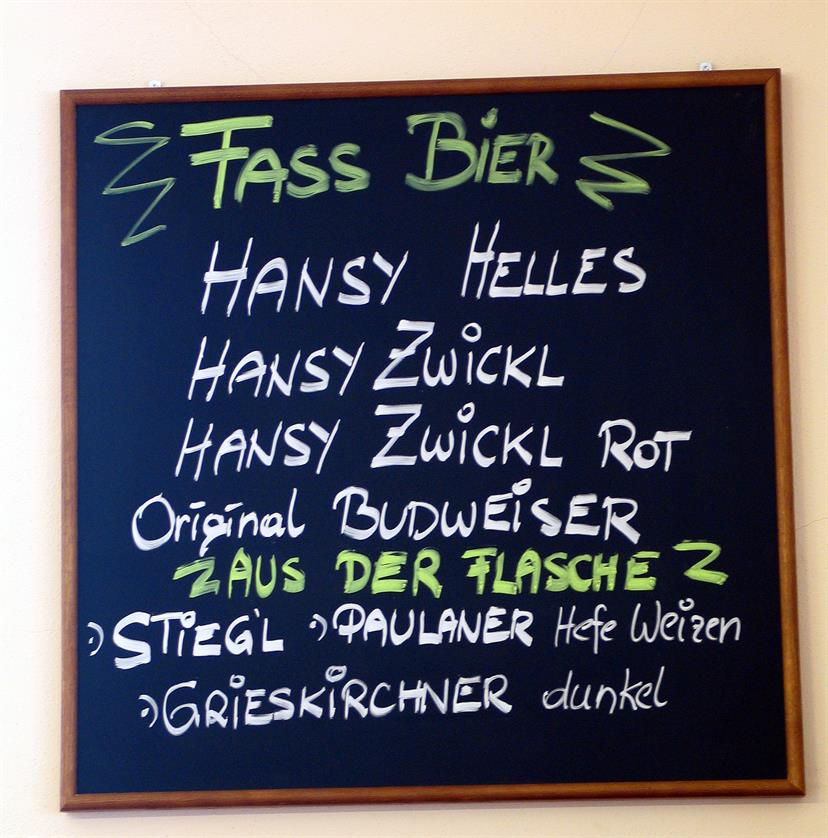 FASS BIER
HANSY HELLES
HANSY ZWICKL
HANSY ZWICKL ROT
Original BUDWEISER
AUS DER FLASCHE
STIEG'L PAULANER Hefe Weizen
GRIESKIRCHNER dunkel